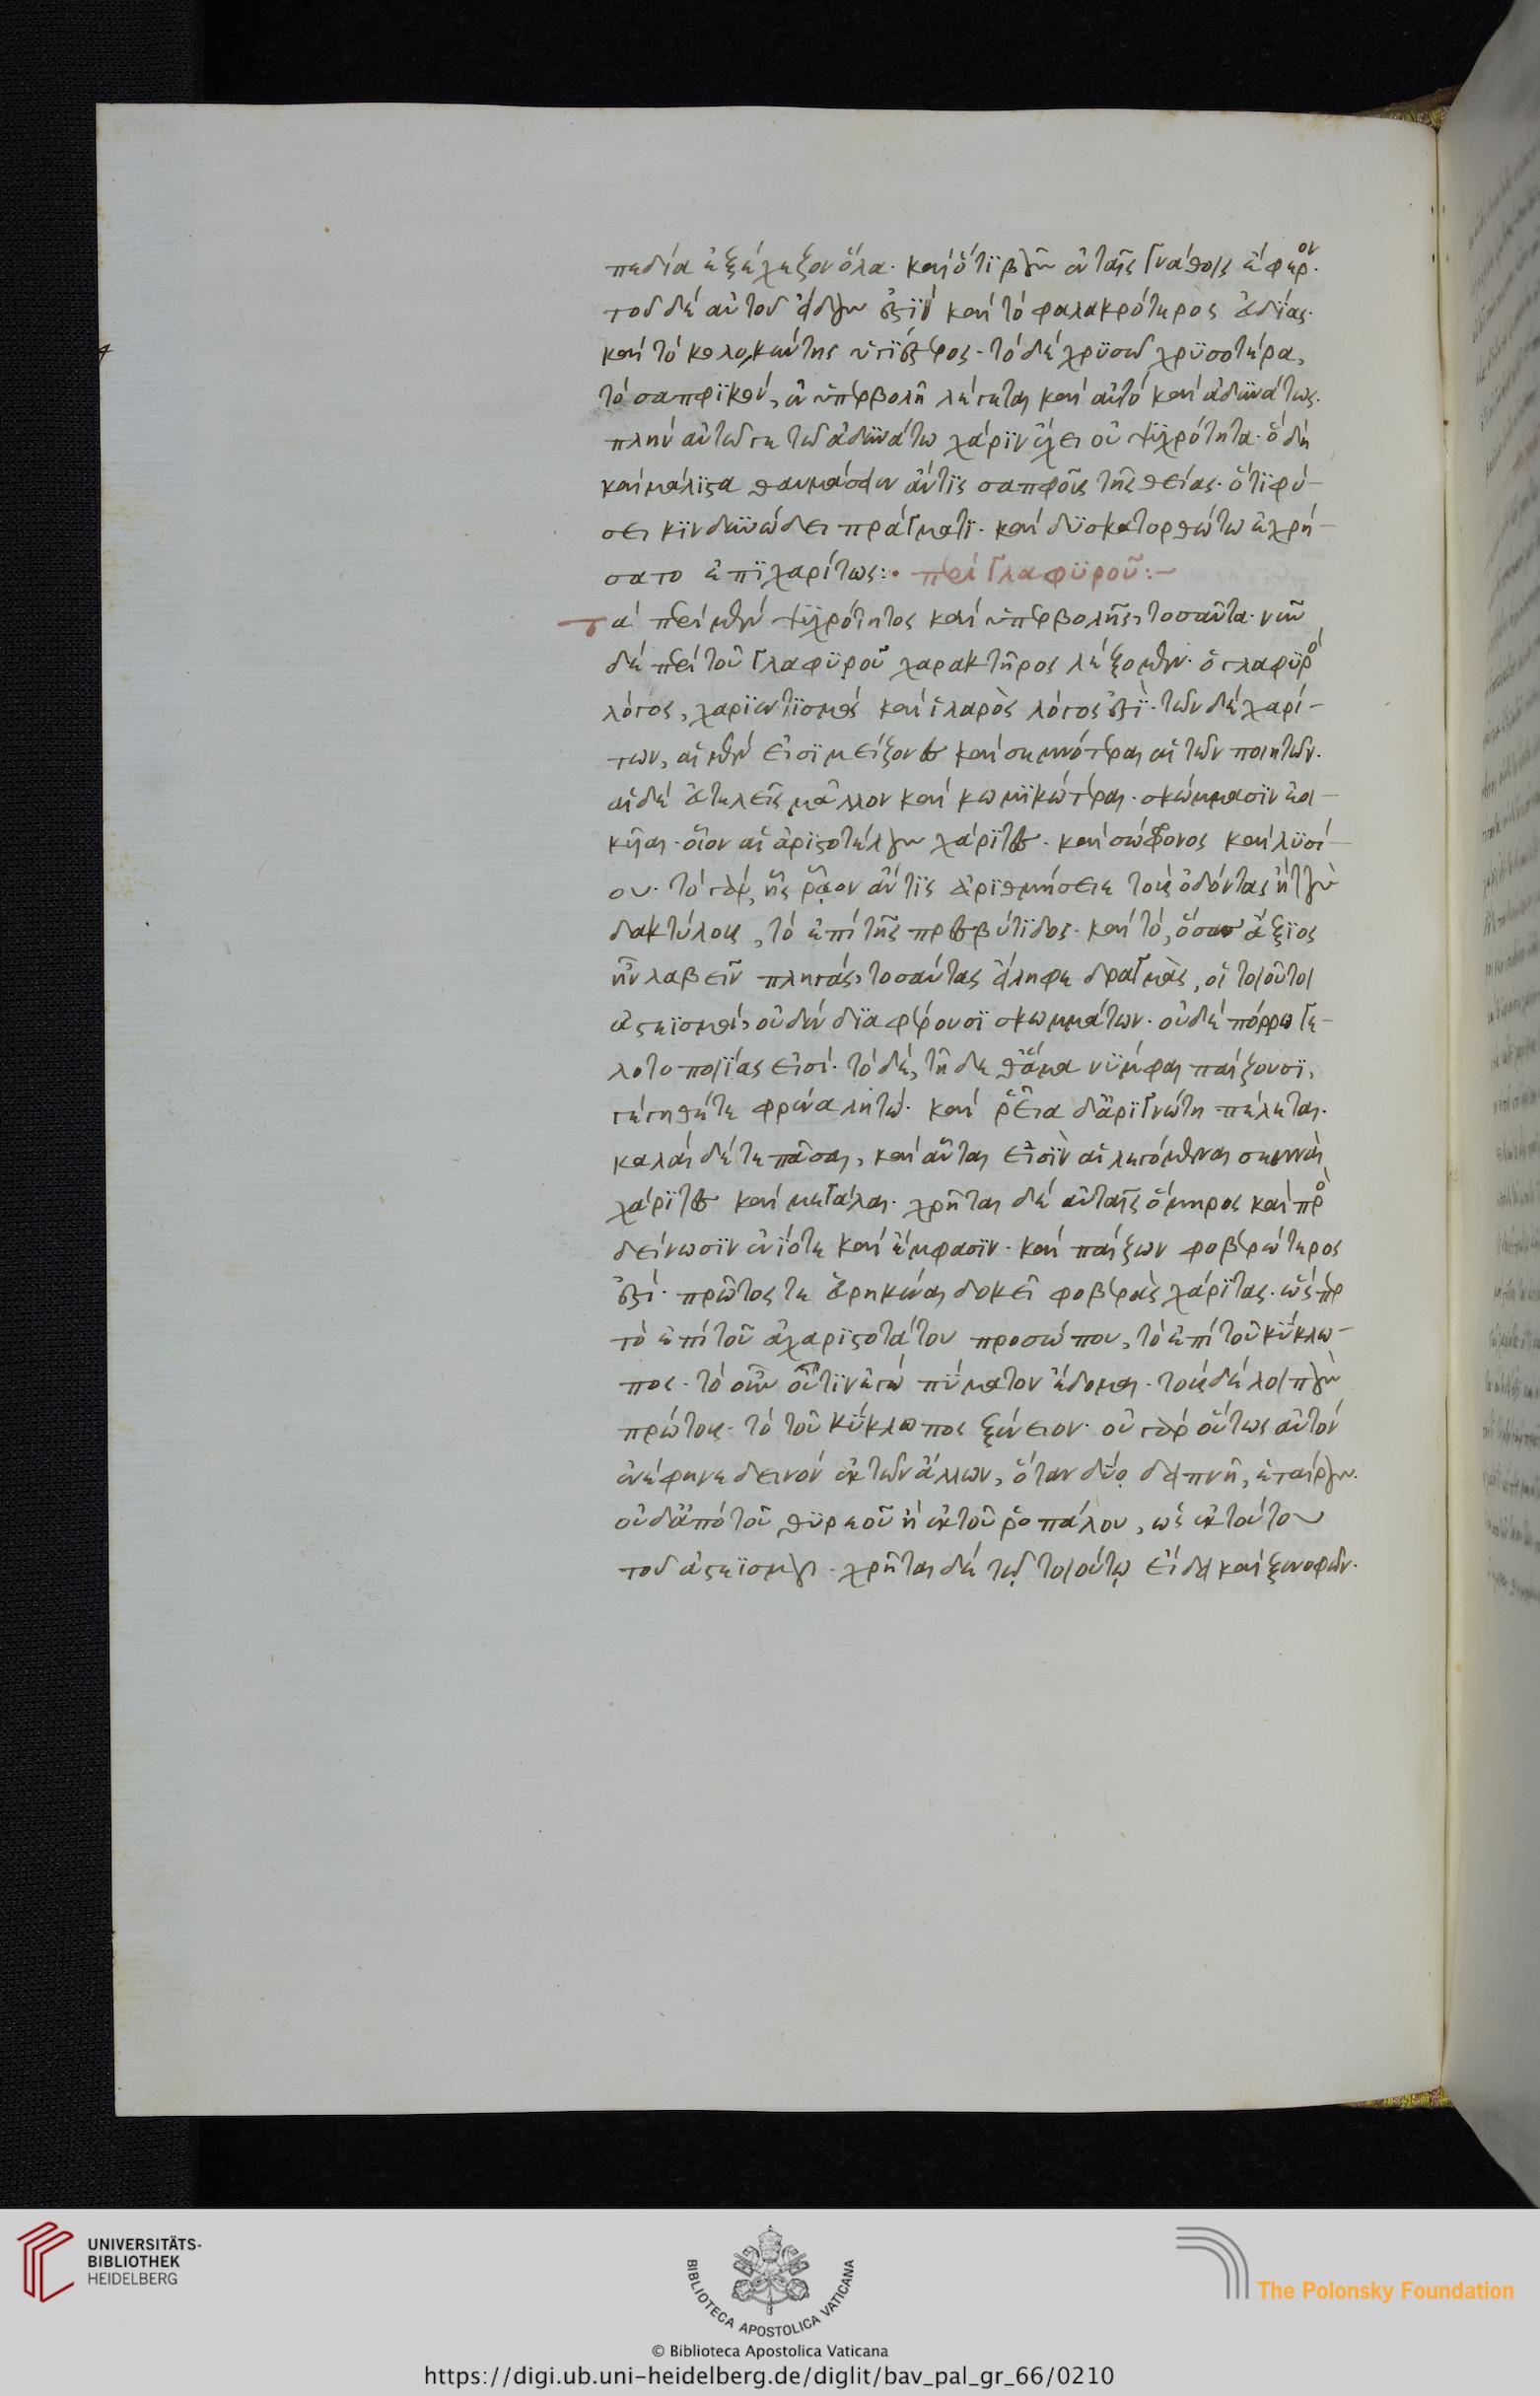 πεδία ἐξέχεζον ὅλα. καὶ ὅτι βοῦν ἐν ταῖς γνάθοις ἔφερον.
τοῦ δὲ αὐτοῦ εἴδους ἐστὶν καὶ τὸ φαλακρότερος εὐδίας.
καὶ τὸ κολοκύντης ὑγιέστερος. τὸ δὲ χρυσῶ χρυσοτέρα,
τὸ σαπφικὸν, ἐν ὑπερβολῆ λέγεται καὶ αὐτὸ καὶ ἀδυνάτως.
πλὴν αὐτῶ γε τῶ ἀδυνάτω χάριν ἔχει οὐ ψυχρότητα. ὃ δὴ
καὶ μάλιστα θαυμάσειεν ἄν τις σαπφοῦς τῆς θείας. ὅτι φύ-
σει κινδυνώδει πράγματι. καὶ δυσκατορθώτω ἐχρή-
σατο ἐπιχαρίτως:· περὶ γλαφυροῦ:-
τὰ περὶ μὲν ψυχρότητος καὶ ὑπερβολῆς, τοσαῦτα. νῦν
δὲ περὶ τοῦ γλαφυροῦ χαρακτῆρος λέξομεν. ὁ γλαφυρὸς
λόγος, χαριεντισμὸς καὶ ἱλαρὸς λόγος ἐστί. τῶν δὲ χαρί-
των, αἱ μὲν εἰσὶ μείζονες καὶ σεμνότεραι αἱ τῶν ποιητῶν.
αἱ δὲ εὐτελεῖς μᾶλλον καὶ κωμικώτεραι. σκώμμασιν ἐοι-
κυῖαι. οἷον αἱ ἀριστοτέλους χάριτες. καὶ σώφρονος καὶ λυσί-
ου. τὸ γὰρ, ἧς ῥᾷον ἄν τις ἀριθμήσειε τοὺς ὀδόντας ἢ τοὺς
δακτύλους, τὸ ἐπὶ τῆς πρεσβύτιδος. καὶ τὸ, ὅσας ἄξιος
ἦν λαβεῖν πληγάς, τοσαύτας εἴληφε δραγμὰς, οἱ τοιοῦτοι
ἀστεϊσμοὶ, οὐδὲν διαφέρουσι σκωμμάτων. οὐδὲ πόρρω γε-
λοτοποιίας εἰσί. τὸ δὲ, τῆ δέ θ' ἅμα νύμφαι παίζουσι,
γέγηθέ τε φρένα λητώ. καὶ ῥεῖα δ' ἀριγνώτη πέλεται.
καλαὶ δέ τε πᾶσαι, καὶ αὗται εἰσὶν αἱ λεγόμεναι σεμναὶ
χάριτες καὶ μεγάλαι. χρῆται δὲ αὐταῖς ὅμηρος καὶ πρὸς
δείνωσιν ἐνίοτε καὶ ἔμφασιν. καὶ παίζων φοβερώτερος
ἐστί. πρῶτος τε εὑρηκέναι δοκεῖ φοβερὰς χάριτας. ὥσπερ
τὸ ἐπὶ τοῦ ἀχαριστοτάτου προσώπου, τὸ ἐπὶ τοῦ κύκλω-
πος. τὸ οὖν οὖτιν ἐγὼ πύματον ἔδομαι. τοὺς δὲ λοιποὺς
πρώτους. τὸ τοῦ κύκλωπος ξένειον. οὐ γὰρ οὕτως αὐτὸν
ἐνέφηνε δεινὸν ἐκ τῶν ἄλλων, ὅταν δύο δειπνῆ, ἑταίρους.
οὐδ' ἀπὸ τοῦ θυρεοῦ ἢ ἐκ τοῦ ῥοπάλου, ὡς ἐκ τούτου
τοῦ ἀστεϊσμοῦ. χρῆται δὲ τῷ τοιούτῳ εἴδει καὶ ξενοφῶν.
UNIVERSITÄTS-
BIBLIOTHEK
HEIDELBERG
BIBLIOTECA APOSTOLICA VATICANA
The Polonsky Foundation
© Biblioteca Apostolica Vaticana
https://digi.ub.uni-heidelberg.de/diglit/bav_pal_gr_66/0210